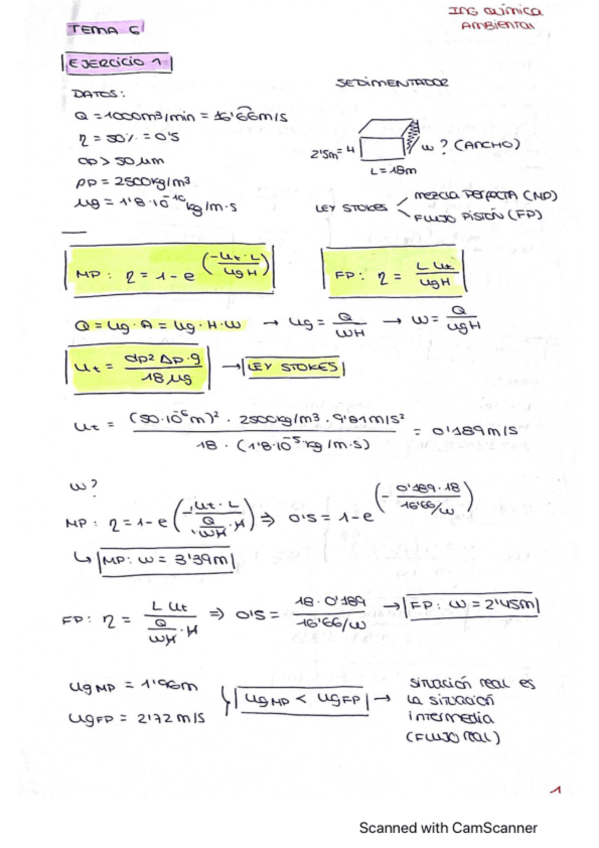 ING QUÍMICA
AMBIENTAL
TEMA 6
EJERCICIO 1
SEDIMENTADOR
DATOS:
Q = 1000m³/min = 16'66m/s
η = 50% = 0'5
dp > 50 μm
ρp = 2500kg/m³
μg = 1'8·10⁻¹⁰ kg/m·s
2'5m = H
w? (ANCHO)
L = 18m
LEY STOKES
MEZCLA PERFECTA (MP)
FLUJO PISTÓN (FP)
MP: η = 1 - e^(-ut·L / ugH)
FP: η = L ut / ugH
Q = ug·A = ug·H·W → ug = Q / WH → W = Q / ugH
ut = dp² Δρ·g / 18 μg → LEY STOKES
ut = (50·10⁻⁶m)² · 2500kg/m³ · 9'81m/s² / 18 · (1'8·10⁻⁵ kg/m·s) = 0'189m/s
w?
MP: η = 1 - e^(-ut·L / (Q/WH)·H) ⇒ 0'5 = 1 - e^(- 0'189·18 / 16'66/w)
↳ MP: w = 3'39m
FP: η = L ut / (Q/WH)·H ⇒ 0'5 = 18·0'189 / 16'66/w → FP: w = 2'45m
ug MP = 1'96m
ug FP = 2'72 m/s
ug MP < ug FP →
situación real es
la situación
intermedia
(FLUJO REAL)
1
Scanned with CamScanner